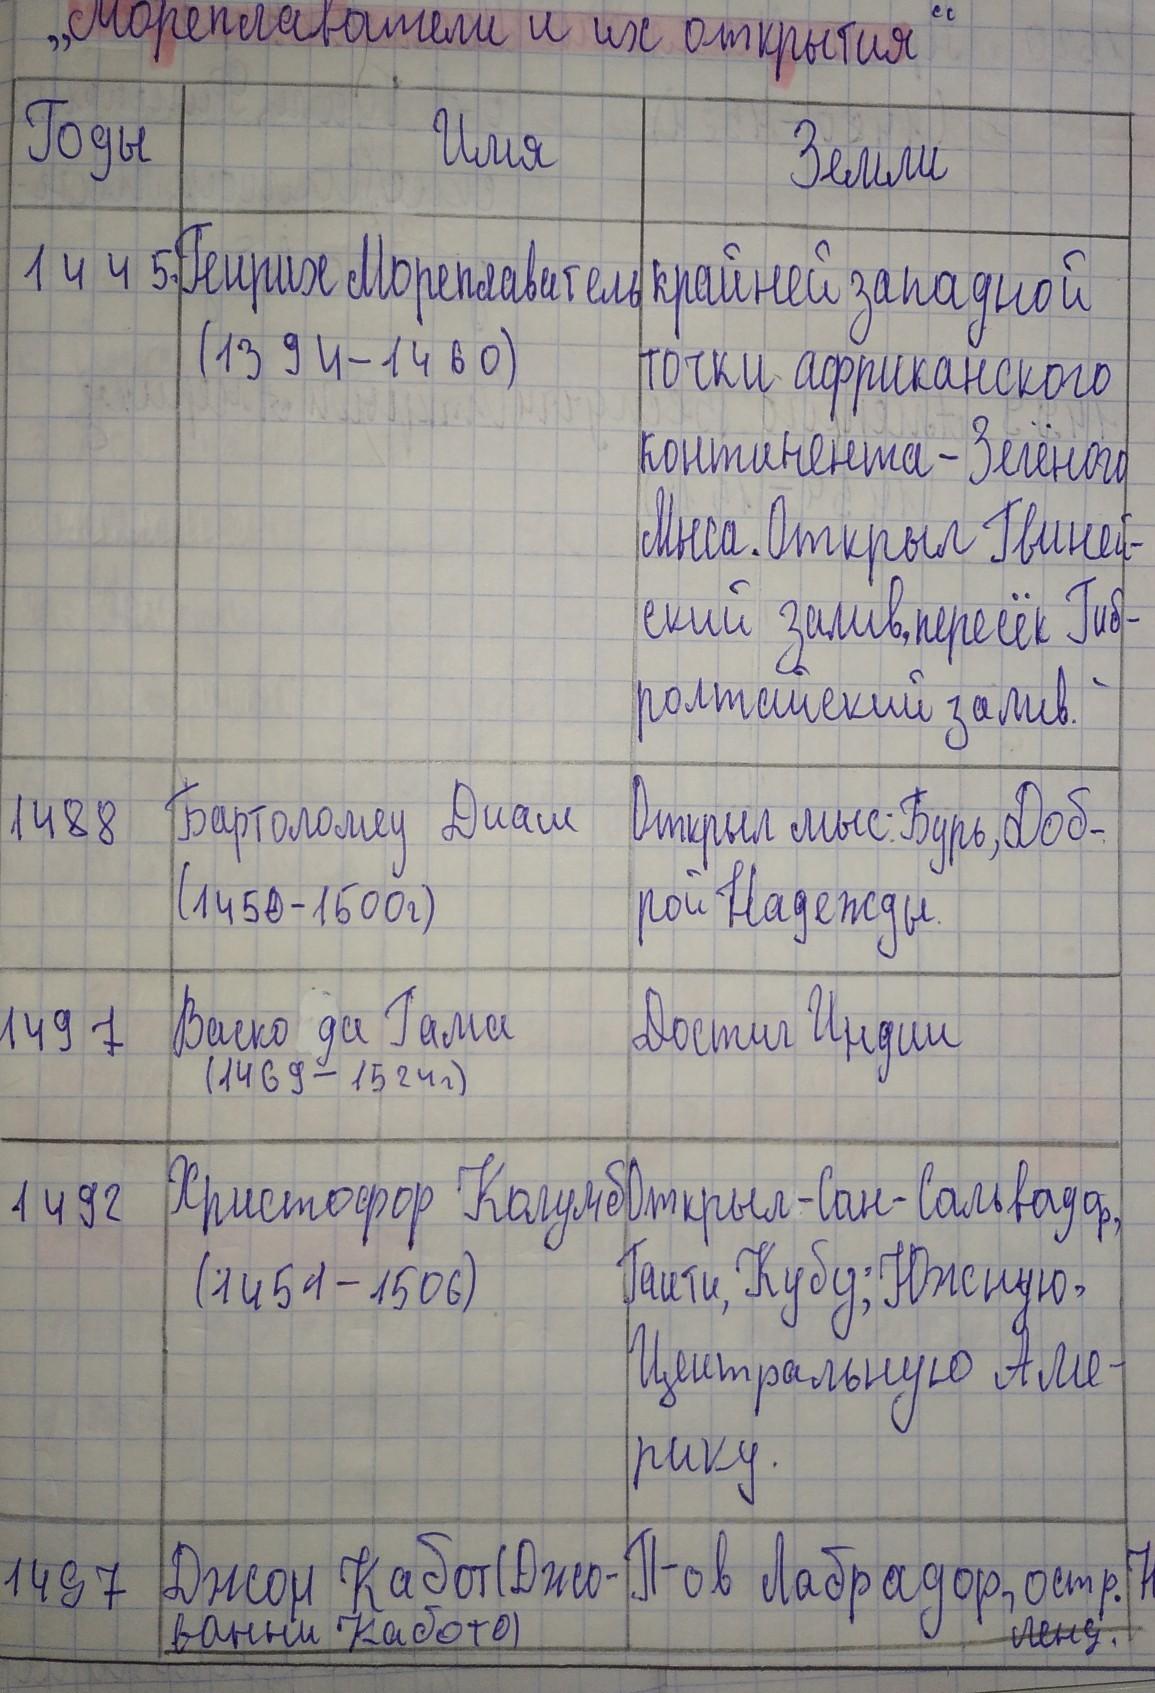 „Мореплаватели и их открытия“
Годы Имя Земли
1445. Генрих Мореплаватель крайней западной
(1394-1460) точки африканского
континента - Зелёного
Мыса. Открыл Гвиней-
ский залив, пересёк Гиб-
ролтайский залив.
1488 Бартоломеу Диаш Открыл мыс: Бурь, Доб-
(1450-1500г) рой Надежды.
1497 Васко да Гама Достиг Индии
(1469-1524г)
1492 Христофор Колумб Открыл - Сан-Сальвадор,
(1451-1506) Гаити, Кубу; Южную,
Центральную Аме-
рику.
1497 Джон Кабот (Джо- П-ов Лабрадор, остр. Н
ванни Кабото) ленд.